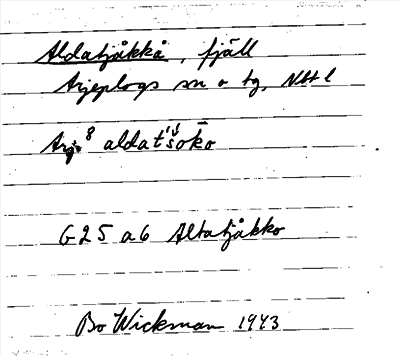 Aldatjåkkå, fjäll
Arjeplogs sn o tg, Nbt l
Arj. 8 aldat'šōkō
G25 a6 Altatjåkko
Bo Wickman 1943